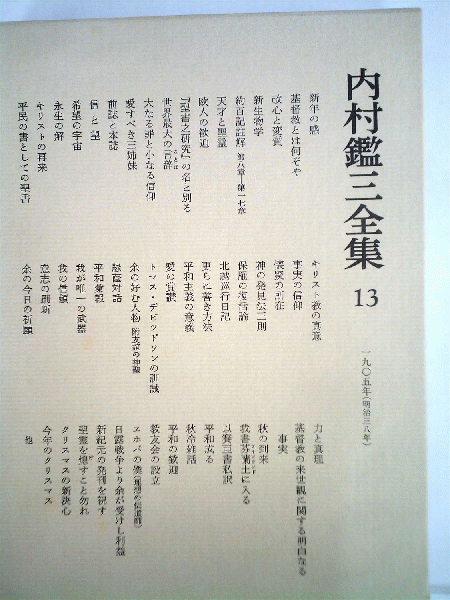 内村鑑三全集 13
一九〇五年(明治三八年)
新年の感
基督教とは何ぞや
改心と変質
新生物学
約百記註解 第八章―第一七章
天才と聖霊
敵人の歓迎
『聖書之研究』の名と別る
世界最大の言辞
大なる罪と小なる信仰
愛すべき三姉妹
前誌と本誌
信と望
希望の宇宙
永生の解
キリストの再来
平民の書としての聖書
キリスト教の真意
事実の信仰
懐疑の所在
神の発見法二則
保羅の復活論
北越巡行日記
更らに善き方法
平和主義の意義
愛の賞讃
トマス・デビッドソンの訓誡
余の好む人物
聴斎対話
平和彙報
我が唯一の武器
我の信頼
意志の刷新
余の今日の祈願
力と真理
基督教の来世観に関する明白なる
事実
秋の到来
我書芬蘭土に入る
以賽亜書私訳
平和成る
秋冷雑話
平和の歓迎
教友会の設立
ヱホバの僕(理想の伝道師)
日露戦争より余が受けし利益
新紀元の発刊を祝す
聖霊を熄すこと勿れ
クリスマスの新決心
今年のクリスマス
他